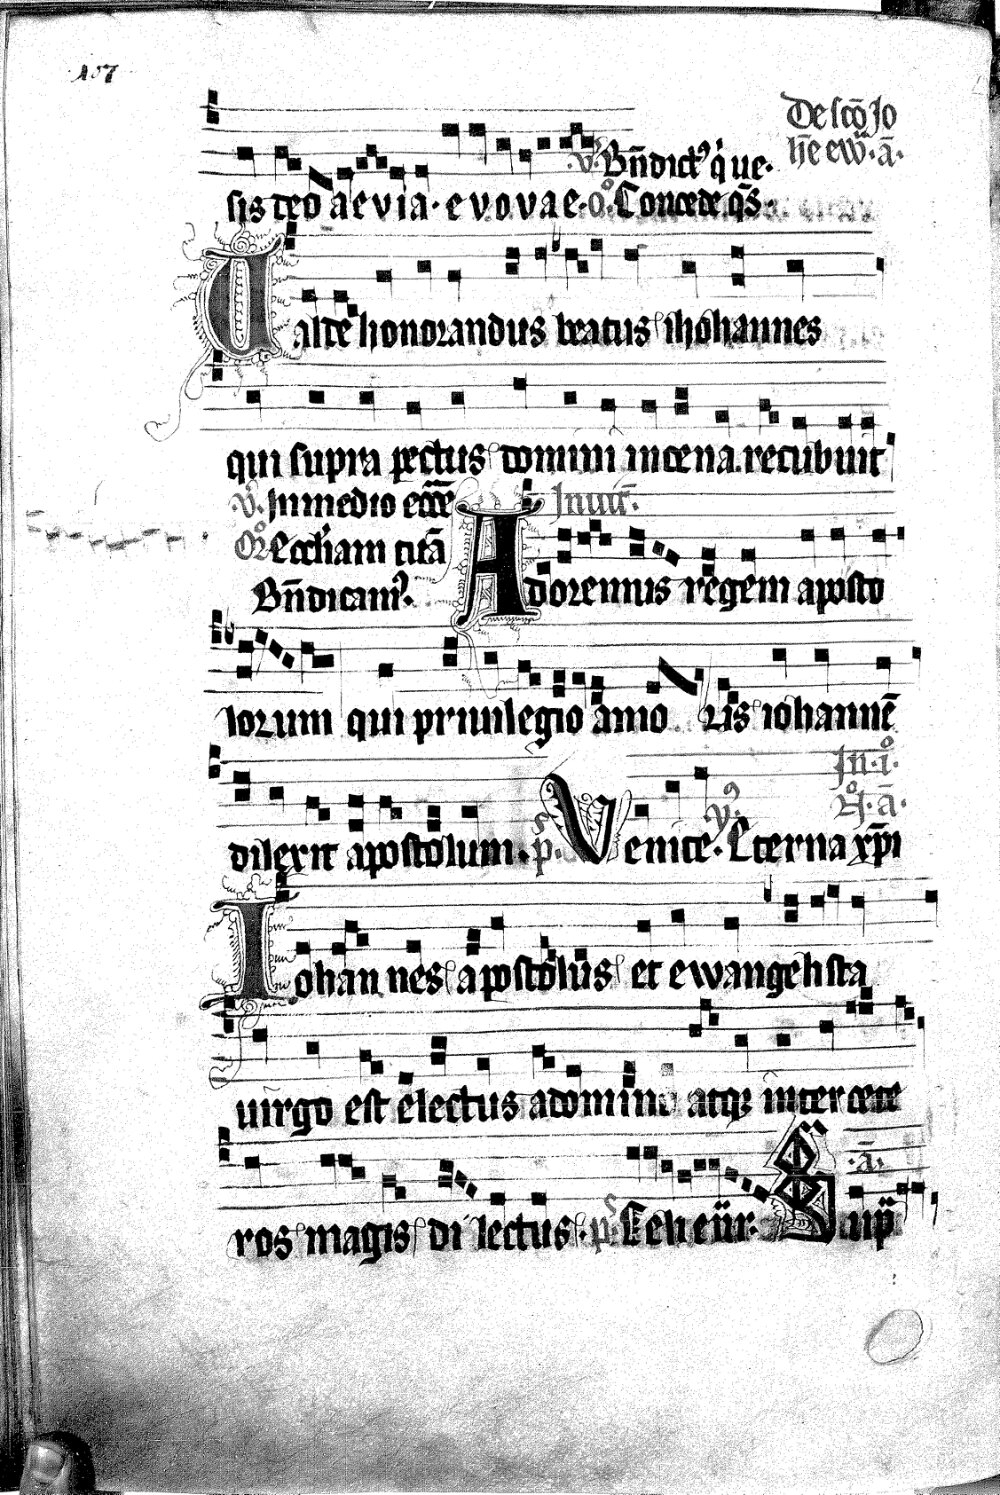 107
De scō Jo
v̄. Bn̄dict⁹ q̇ ue.
hē ew̄. ā.
sis deo aevia. evovae. oͦ. Concede q̄s.
Valde honorandus beatus ihohannes
qui supra pectus domini in cena recubuit
v̄. In medio ecc̄e Inuit̄.
Oͦr. Eccl̄iam tuā
Adoremus regem aposto
Bn̄dicam⁹.
lorum qui priuilegio amo ris iohannē
In .i.
N̊. ā.
dilexit apostolum. ps̄. Venite. y⁹. Eterna xp̄i
Iohannes apostolus et ewangelista
uirgo est electus a domino atqꝫ inter cete
.ā.
ros magis di lectus. ps̄. Celi en̄r. Sup̄